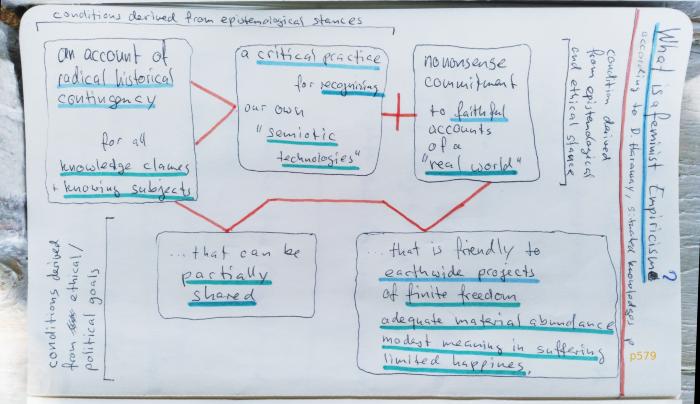 What is a feminist Empiricism?
according to D. Haraway, situated knowledges p
p579
conditions derived from epistemological stances
an account of
radical historical
contingency
for all
knowledge clames
+ knowing subjects
a critical practice
for recognising
our own
"semiotic
technologies"
+
nononsense
commitment
to faithful
accounts
of a
"real world"
condition derived
from epistemological
and ethical stance
...that can be
partially
shared
...that is friendly to
earthwide projects
of finite freedom
adequate material abundance
modest meaning in suffering
limited happines.
conditions derived
from ethical/
political goals